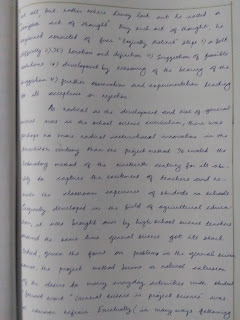 at all, but rather where having had out he called a
complete act of thought. Any such act of thought, he
explained consisted of five "logically distinct" steps: i) a felt
difficulty ii) its location and definition iii) suggestion of possible
solutions iv) development by reasoning of the bearing of the
suggestion v) further observation and experimentation leading
to its acceptance or rejection.
As radical as the development and rise of general
science was in the school science curriculum, there was
perhaps no more radical instructional innovation in the
twentieth century than the project method. So called the
method of the twentieth century for its abi-
lity to capture the sentiment of teachers and re-
the classroom experience of students in schools
Originally developed in the field of agricultural educa-
tion, it was brought over by high school science teachers
around the same time general science got its start.
Indeed, given the focus on problems in the general science
course, the project method seemed a natural extension
of the desire to marry everyday activities with student
"general science is project science" was
common refrain. Essentially in many ways following